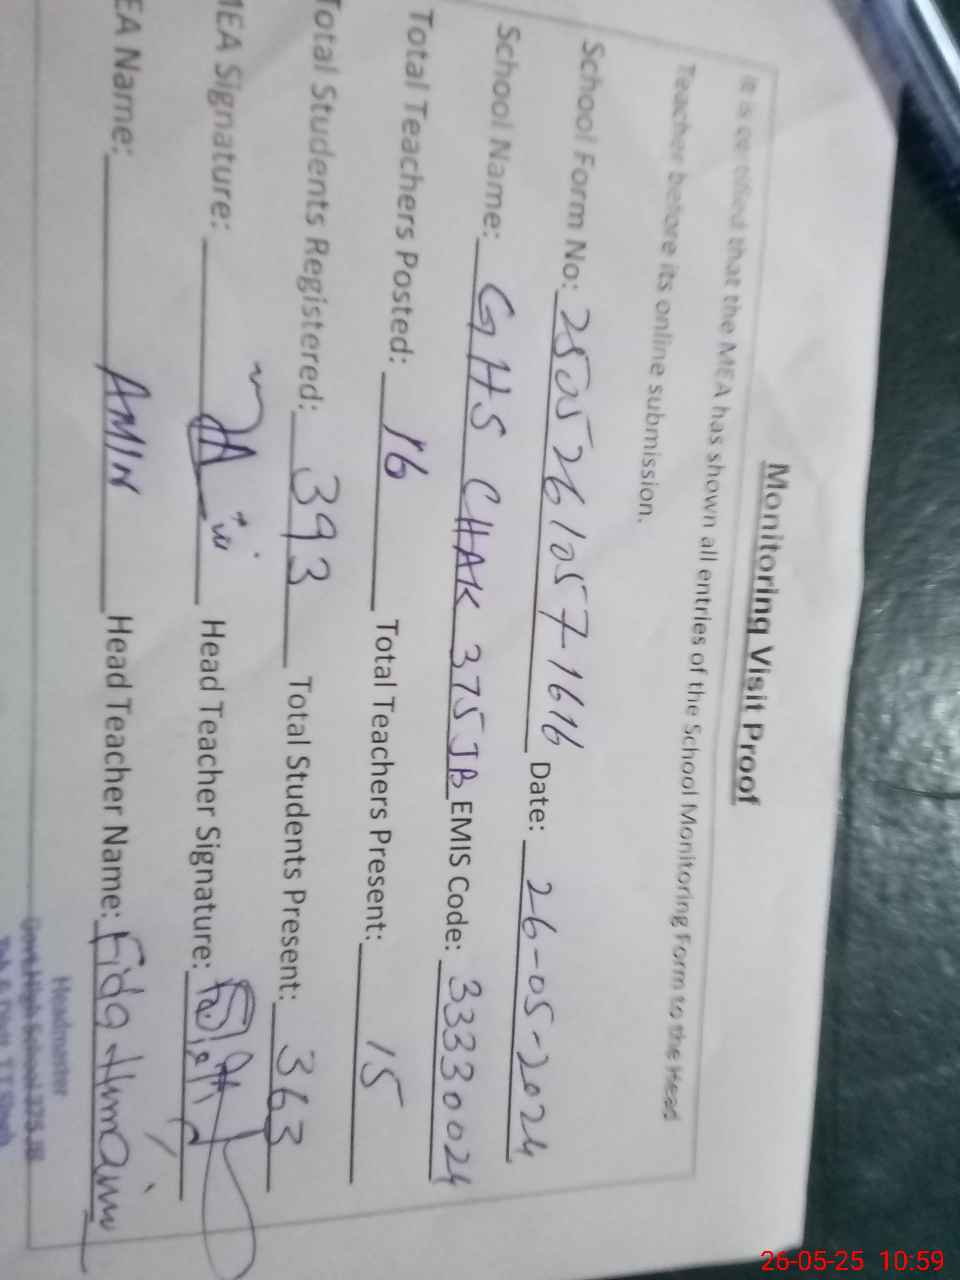 Monitoring Visit Proof
It is certified that the MEA has shown all entries of the School Monitoring Form to the Head
Teacher before its online submission.
School Form No: 25052610571616 Date: 26-05-2024
School Name: GHS CHAK 375 JB EMIS Code: 33330024
Total Teachers Posted: 16 Total Teachers Present: 15
Total Students Registered: 393 Total Students Present: 363
MEA Signature: Head Teacher Signature:
EA Name: AMIN Head Teacher Name: Fida
Headmaster
Govt. High School 375 JB
26-05-25 10:59